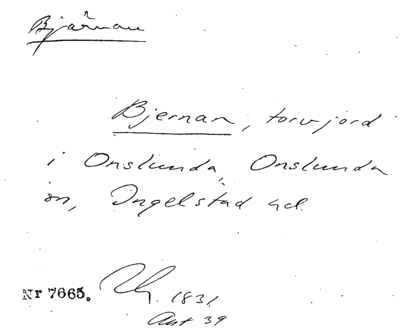 Bjärnan
Bjernan, torvjord
i Onslunda, Onslunda
sn, Ingelstad hd.
Nr 7665.
1831
Akt 39